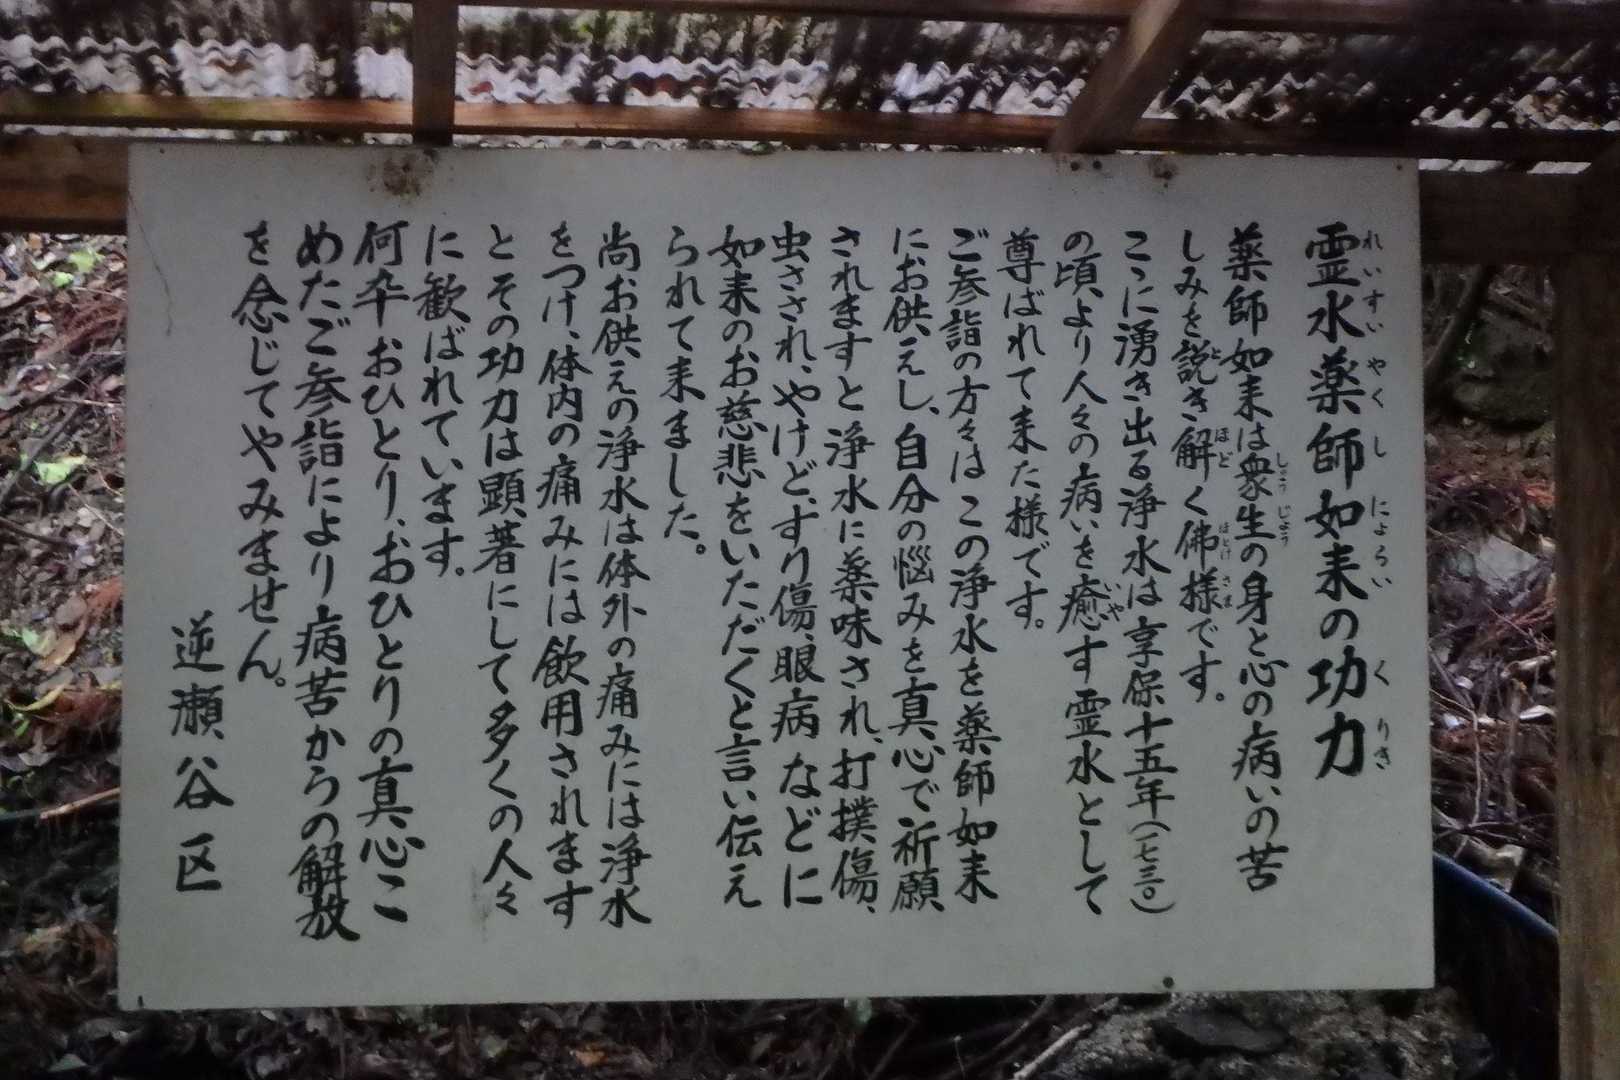 霊水薬師如来の功力
れいすいやくしにょらい くりき
薬師如来は衆生の身と心の病いの苦
しょうじょう
しみを説き解く佛様です。
と ほど ほとけさま
こゝに湧き出る浄水は享保十五年(一七三〇)
の頃より人々の病いを癒す霊水として
いや
尊ばれて来た様です。
ご参詣の方々はこの浄水を薬師如来
にお供えし、自分の悩みを真心で祈願
されますと浄水に薬味され、打撲傷、
虫さされ、やけど、すり傷、眼病などに
如来のお慈悲をいただくと言い伝え
られて来ました。
尚お供えの浄水は体外の痛みには浄水
をつけ、体内の痛みには飲用されます
とその功力は顕著にして多くの人々
に歓ばれています。
何卆おひとり、おひとりの真心こ
めたご参詣により病苦からの解放
を念じてやみません。
逆瀬谷区